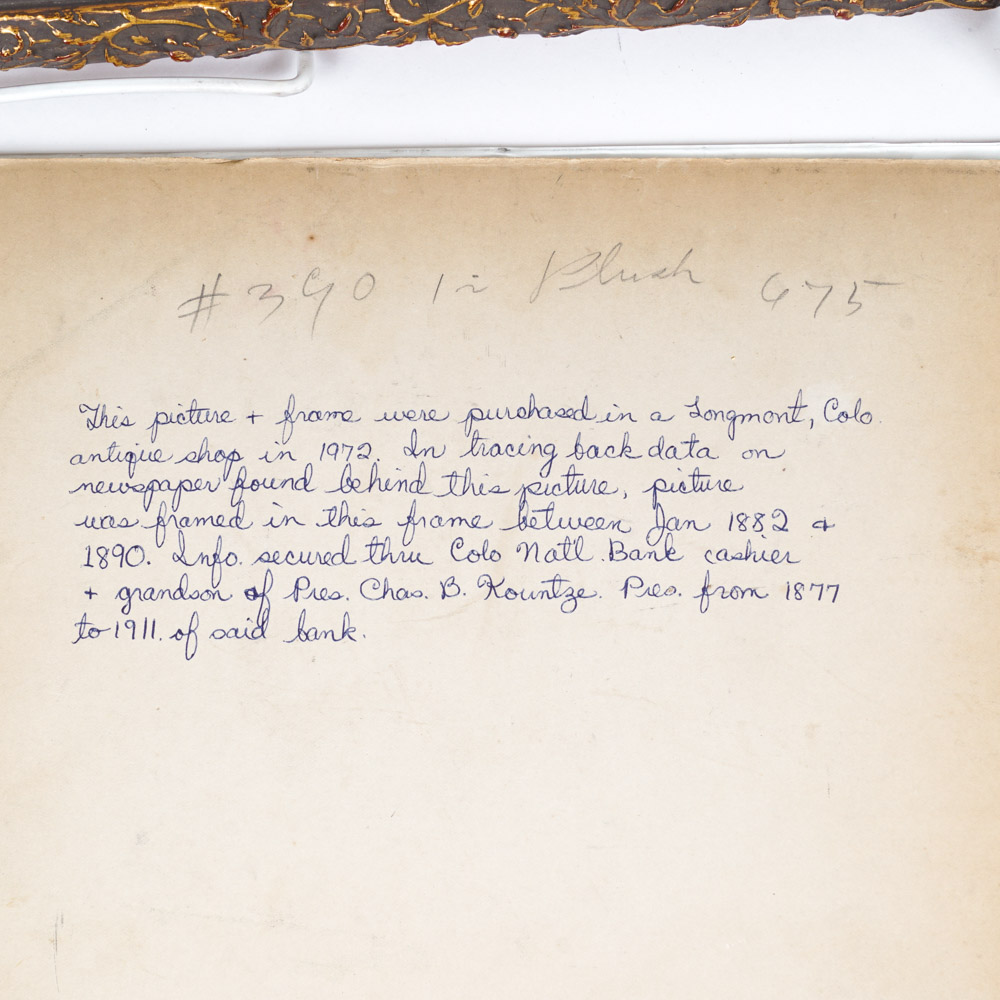 #390 1 in Plush 675
This picture + frame were purchased in a Longmont, Colo.
antique shop in 1972. In tracing back data on
newspaper found behind this picture, picture
was framed in this frame between Jan 1882 +
1890. Info. secured thru Colo Natl. Bank cashier
+ grandson of Pres. Chas. B. Kountze. Pres. from 1877
to 1911. of said bank.